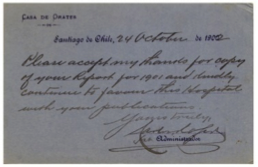 CASA DE ORATES
Santiago de Chile, 24 October de 1902
Please accept my thanks for copy
of your Report for 1901 and kindly
continue to favour this Hospital
with your publications
Yours truly,
Administrator